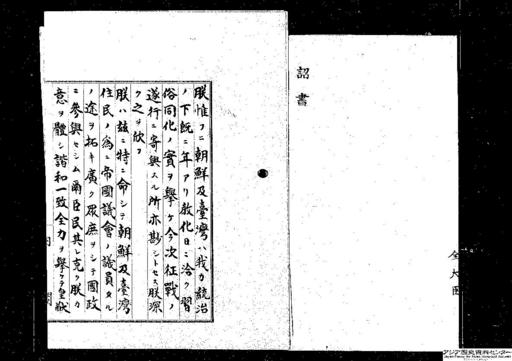 詔書
朕惟フニ朝鮮及臺灣ハ我カ統治
ノ下既ニ年アリ教化日ニ洽ク習
俗同化ノ實ヲ擧ケ今次征戰ノ
遂行ニ寄與スル所亦尠シトセス朕深
ク之ヲ欣フ
朕ハ玆ニ特ニ命シテ朝鮮及臺灣
住民ノ爲ニ帝國議會ノ議員タル
ノ途ヲ拓キ廣ク眾庶ヲシテ國政
ニ參與セシム爾臣民其レ克ク朕カ
意ヲ體シ諧和一致全力ヲ擧ケテ皇猷
アジア歴史資料センター